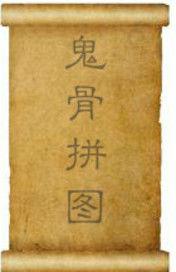 鬼骨拼图